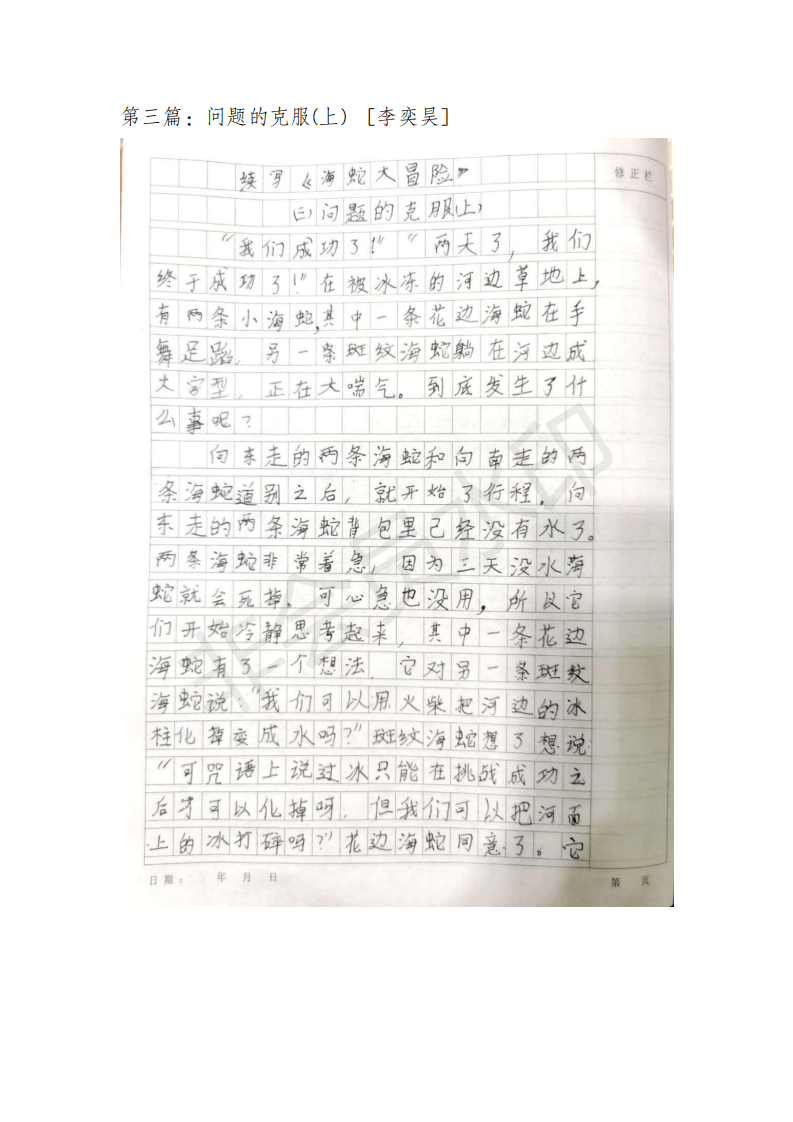 第三篇：问题的克服(上) [李奕昊]
续写《海蛇大冒险》
修正栏
(二)问题的克服(上)
“我们成功了！”“两天了，我们
终于成功了！”在被冰冻的河边草地上，
有两条小海蛇,其中一条花边海蛇在手
舞足蹈，另一条斑纹海蛇躺在河边成
大字型，正在大喘气。到底发生了什
么事呢？
向东走的两条海蛇和向南走的两
条海蛇道别之后，就开始了行程。向
东走的两条海蛇背包里己经没有水了。
两条海蛇非常着急，因为三天没水海
蛇就会死掉。可心急也没用，所以它
们开始冷静思考起来，其中一条花边
海蛇有了一个想法．它对另一条斑纹
海蛇说：“我们可以用火柴把河边的冰
柱化掉变成水吗？”斑纹海蛇想了想说：
“可咒语上说过冰只能在挑战成功之
后才可以化掉呀．但我们可以把河面
上的冰打碎吗？”花边海蛇同意了。它
日期： 年 月 日
第 页
非会员水印